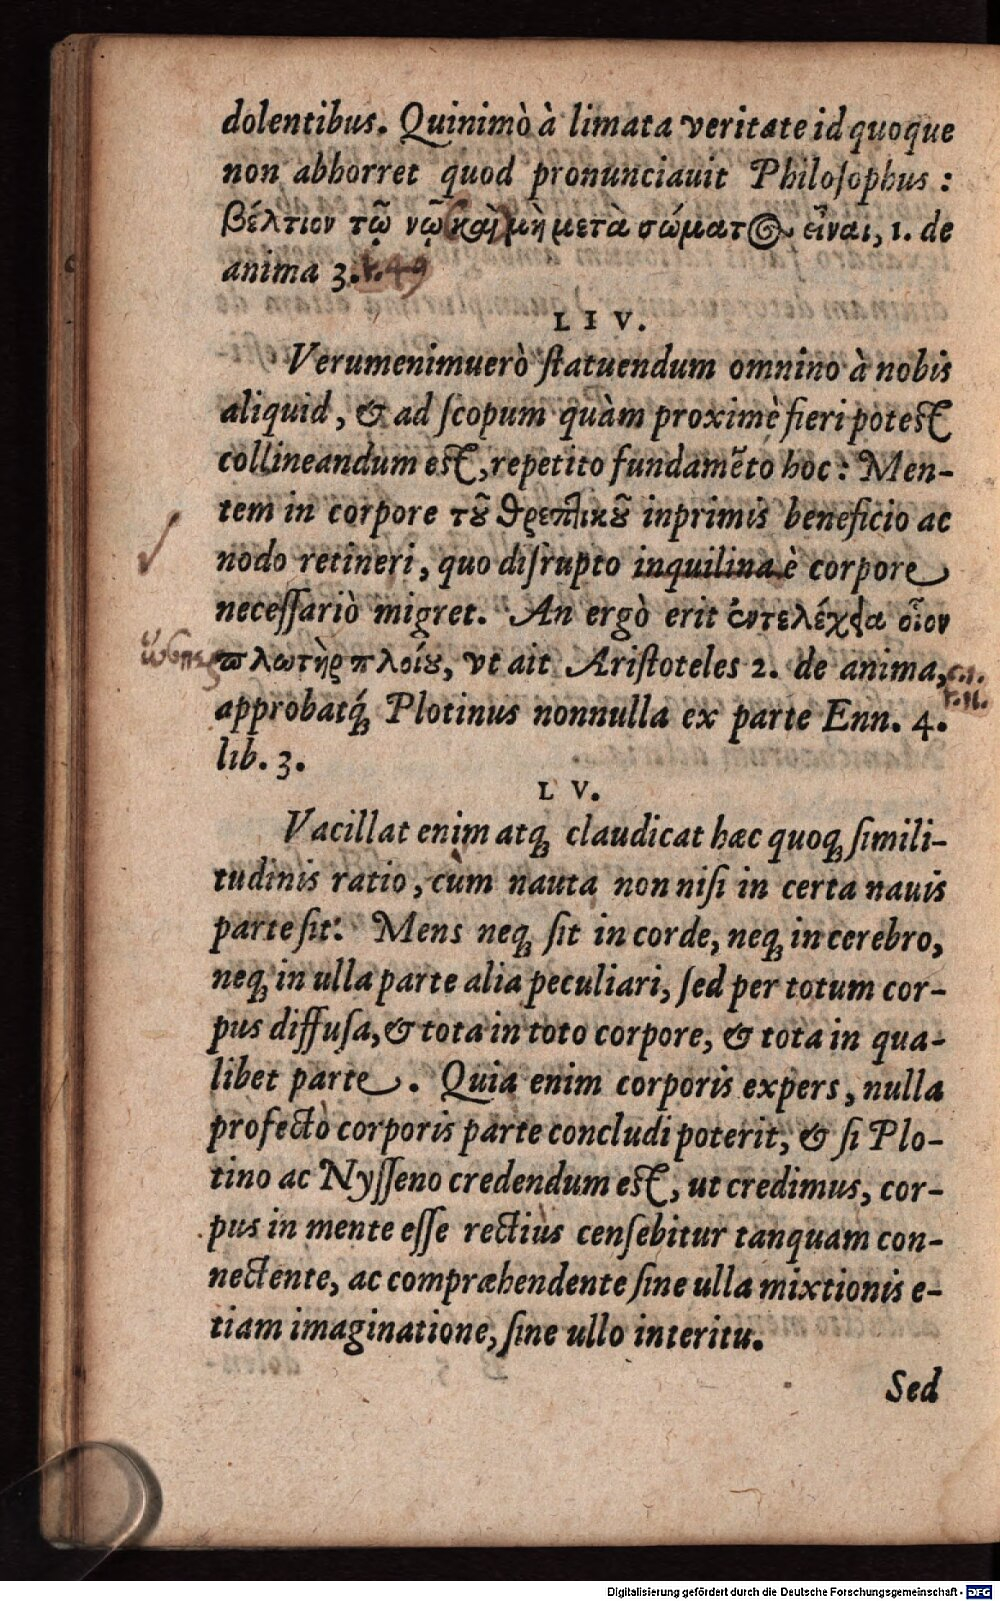 dolentibus. Quinimò à limata veritate id quoque
non abhorret quod pronunciauit Philoſophus :
βέλτιον τῷ νῷ καὶ μὴ μετὰ σώματος εἶναι, 1. de
anima 3. t. 49
LIV.
Verumenimuerò ſtatuendum omnino à nobis
aliquid, & ad ſcopum quàm proximè fieri poteſt
collineandum eſt, repetito fundamēto hoc : Men-
tem in corpore τοῦ θρεπτικοῦ inprimis beneficio ac
nodo retineri, quo diſrupto inquilina è corpore
neceſſariò migret. An ergò erit ἐντελέχεια οἷον
ὥσπερ
πλωτὴρ πλοίου, vt ait Ariſtoteles 2. de anima, c.1.
t.11.
approbatq́; Plotinus nonnulla ex parte Enn. 4.
lib. 3.
LV.
Vacillat enim atq; claudicat hæc quoq; ſimili-
tudinis ratio, cùm nauta non niſi in certa nauis
parte ſit: Mens neq; ſit in corde, neq; in cerebro,
neq; in ulla parte alia peculiari, ſed per totum cor-
pus diffuſa, & tota in toto corpore, & tota in qua-
libet parte. Quia enim corporis expers, nulla
profectò corporis parte concludi poterit, & ſi Plo-
tino ac Nyſſeno credendum eſt, ut credimus, cor-
pus in mente eſſe rectius cenſebitur tanquam con-
nectente, ac compræhendente ſine ulla mixtionis e-
tiam imaginatione, ſine ullo interitu.
Sed
Digitalisierung gefördert durch die Deutsche Forschungsgemeinschaft - DFG